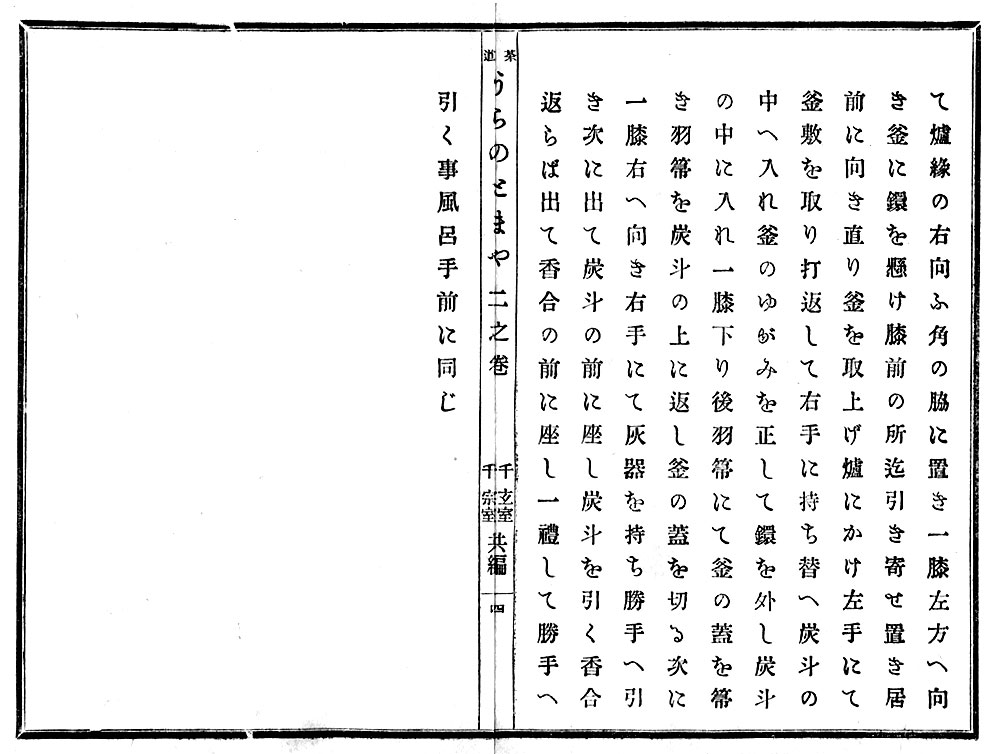 て爐緣の右向ふ角の脇に置き一膝左方へ向
き釜に鐶を懸け膝前の所迄引き寄せ置き居
前に向き直り釜を取上げ爐にかけ左手にて
釜敷を取り打返して右手に持ち替へ炭斗の
中へ入れ釜のゆがみを正して鐶を外し炭斗
の中に入れ一膝下り後羽箒にて釜の蓋を箒
き羽箒を炭斗の上に返し釜の蓋を切る次に
一膝右へ向き右手にて灰器を持ち勝手へ引
き次に出て炭斗の前に座し炭斗を引く香合
返らば出て香合の前に座し一禮して勝手へ
茶道 うらのとまや二之卷 千玄室 千宗室 共編 四
引く事風呂手前に同じ